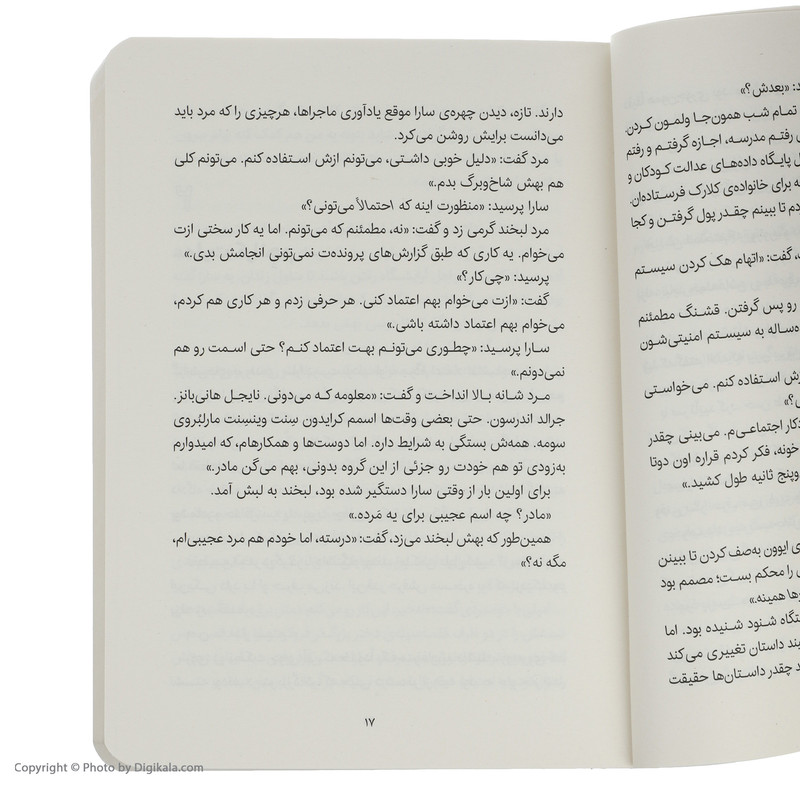 د: «بعدش؟»
تمام شب همون‌جا ولمون کردن.
رفتم مدرسه، اجازه گرفتم و رفتم
ل پایگاه داده‌های عدالت کودکان و
ه برای خانواده‌ی کلارک فرستاده‌ان.
دم تا ببینم چقدر پول گرفتن و کجا
، گفت: «اتهام هک کردن سیستم
رو پس گرفتن. قشنگ مطمئنم
ه‌ساله به سیستم امنیتی‌شون
زش استفاده کنم. می‌خواستی
ی؟»
دکار اجتماعی‌م. می‌بینی چقدر
خونه، فکر کردم قراره اون دوتا
وپنج ثانیه طول کشید.»
ی ایوون به‌صف کردن تا ببینن
ی را محکم بست؛ مصمم بود
رها همینه.»
ستگاه شنود شنیده بود. اما
بند داستان تغییری می‌کند
د چقدر داستان‌ها حقیقت
دارند. تازه، دیدن چهره‌ی سارا موقع یادآوری ماجراها، هرچیزی را که مرد باید
می‌دانست برایش روشن می‌کرد.
مرد گفت: «دلیل خوبی داشتی، می‌تونم ازش استفاده کنم. می‌تونم کلی
هم بهش شاخ‌وبرگ بدم.»
سارا پرسید: «منظورت اینه که احتمالاً می‌تونی؟»
مرد لبخند گرمی زد و گفت: «نه، مطمئنم که می‌تونم. اما یه کار سختی ازت
می‌خوام. یه کاری که طبق گزارش‌های پرونده‌ت نمی‌تونی انجامش بدی.»
پرسید: «چی‌کار؟»
گفت: «ازت می‌خوام بهم اعتماد کنی. هر حرفی زدم و هر کاری هم کردم،
می‌خوام بهم اعتماد داشته باشی.»
سارا پرسید: «چطوری می‌تونم بهت اعتماد کنم؟ حتی اسمت رو هم
نمی‌دونم.»
مرد شانه بالا انداخت و گفت: «معلومه که می‌دونی. نایجل هانی‌بانز.
جرالد اندرسون. حتی بعضی وقت‌ها اسمم کرایدون سِنت وینسِنت مارلبُروی
سومه. همه‌ش بستگی به شرایط داره. اما دوست‌ها و همکارهام، که امیدوارم
به‌زودی تو هم خودت رو جزئی از این گروه بدونی، بهم می‌گن مادر.»
برای اولین بار از وقتی سارا دستگیر شده بود، لبخند به لبش آمد.
«مادر؟ چه اسم عجیبی برای یه مَرده.»
همین‌طور که بهش لبخند می‌زد، گفت: «درسته، اما خودم هم مرد عجیبی‌ام،
مگه نه؟»
۱۷
Copyright © Photo by Digikala.com